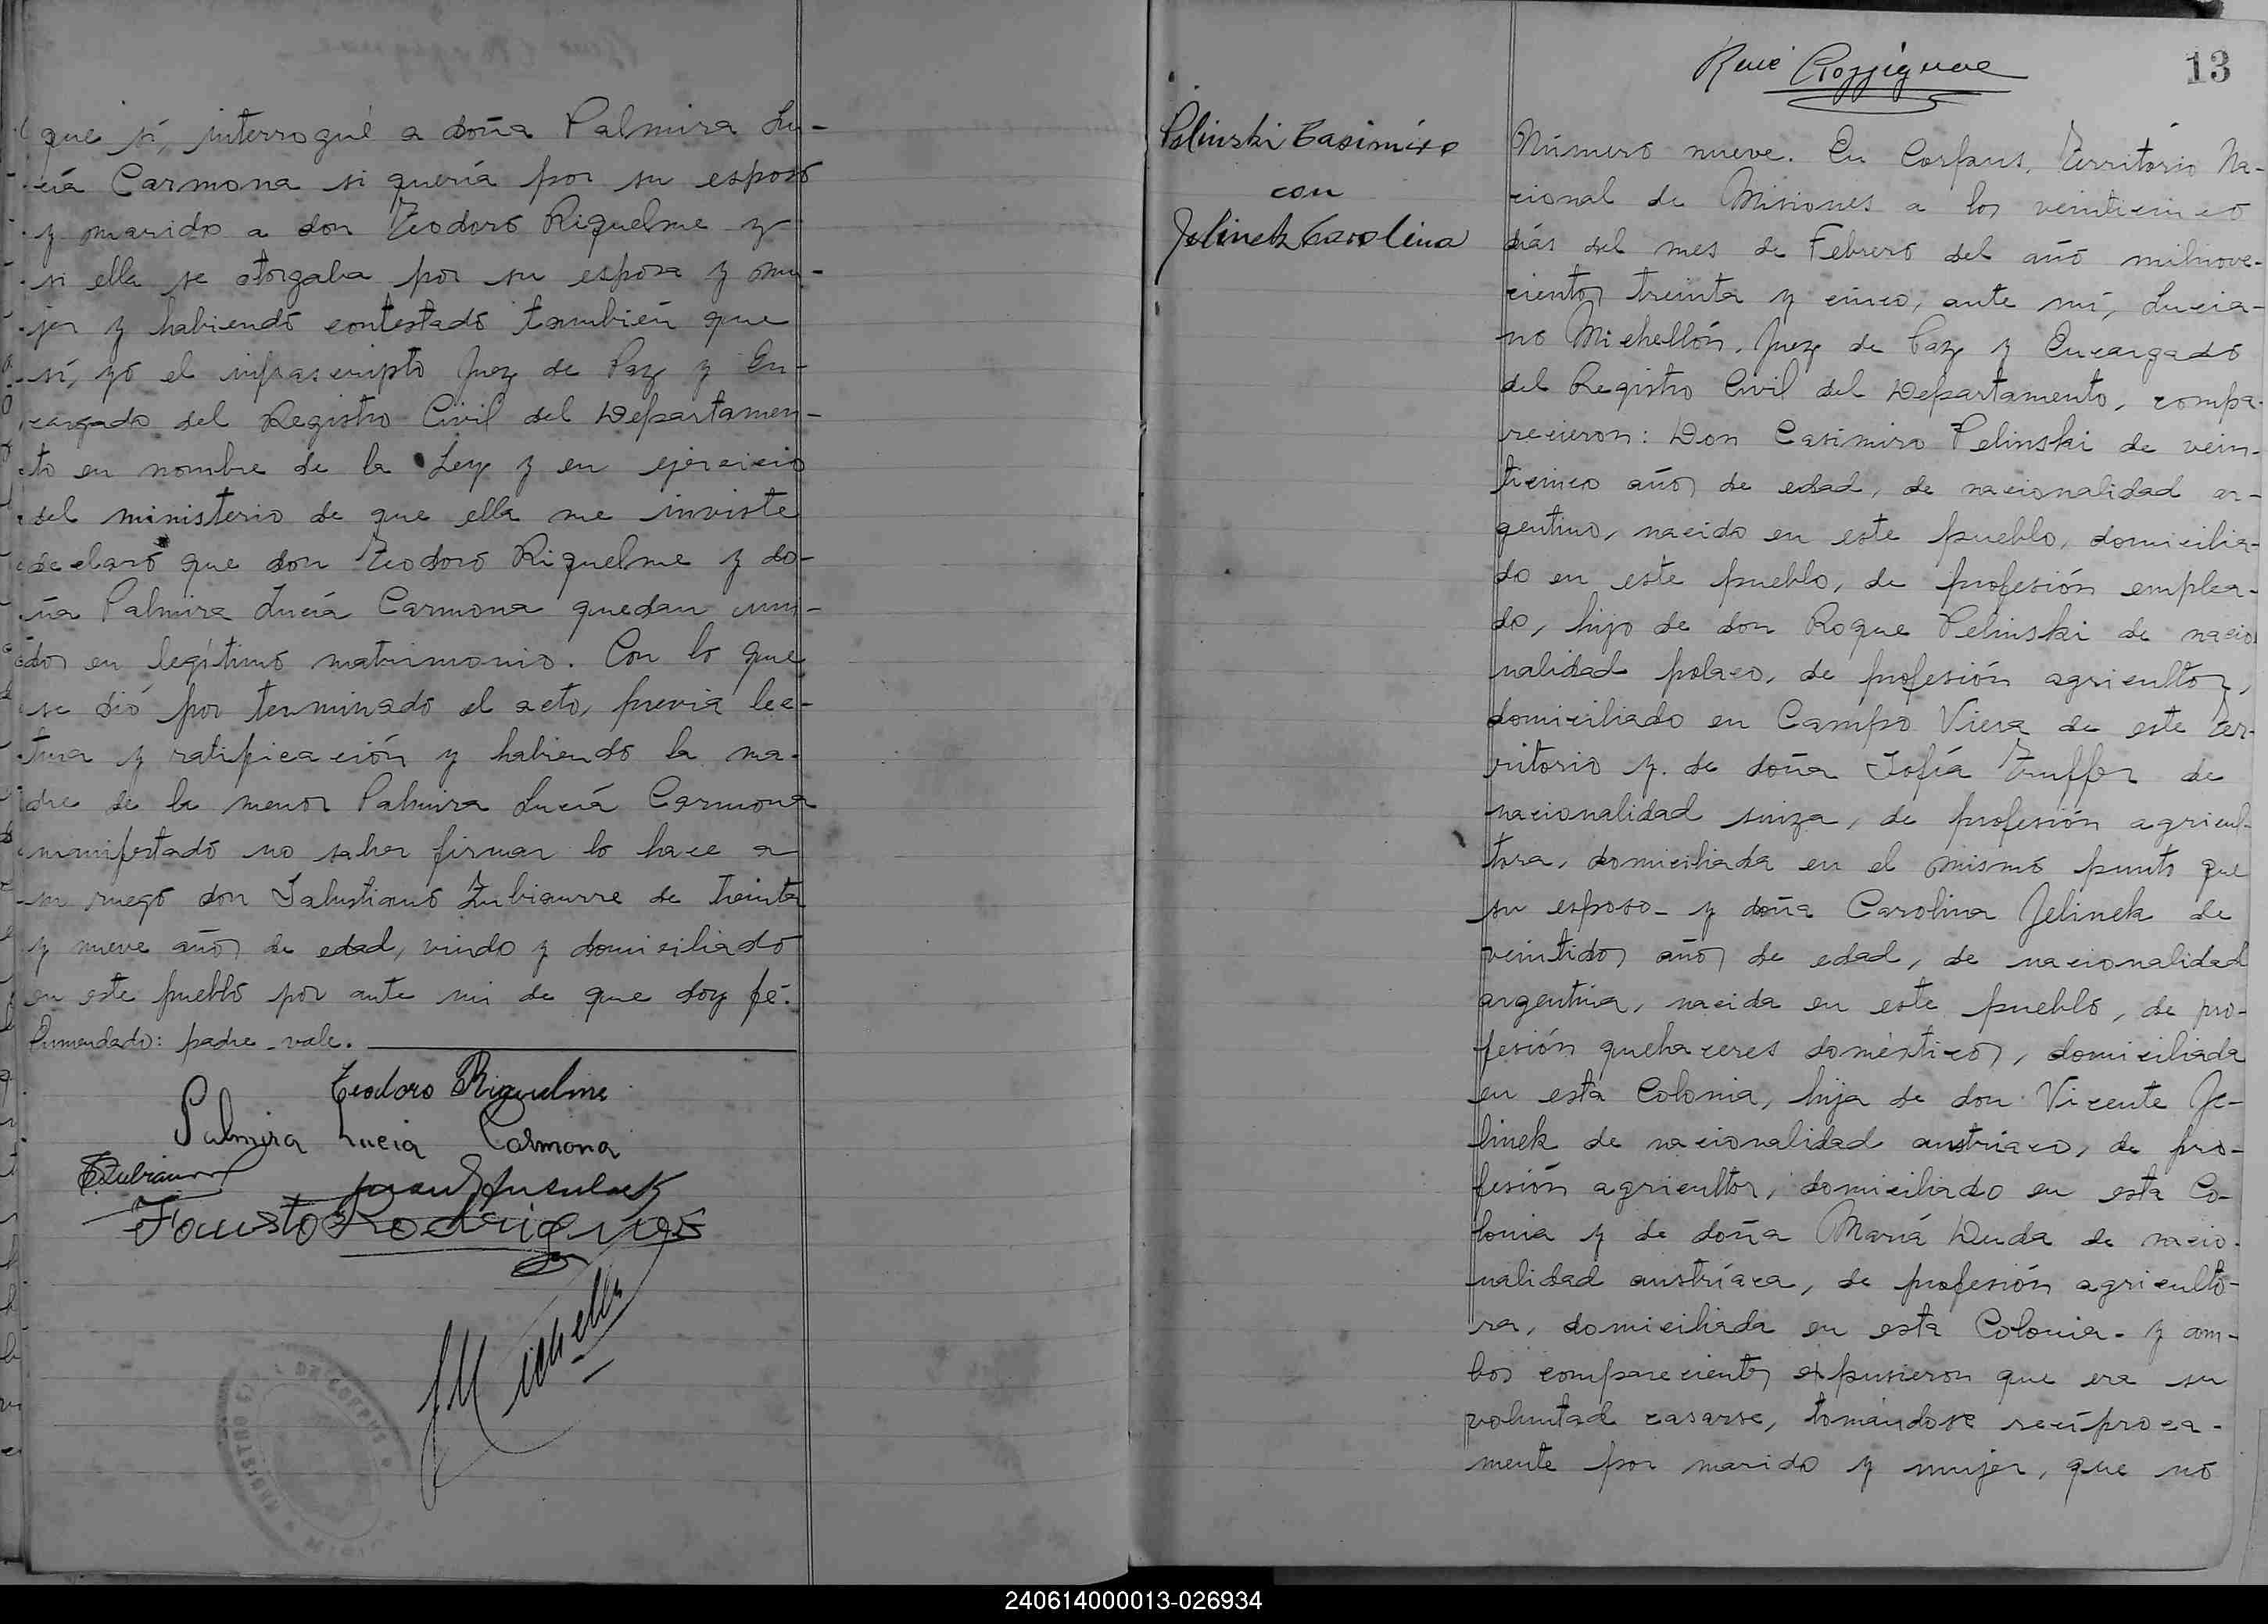 que sí, interrogué a doña Palmira Lu-
cía Carmona si quería por su esposo
y marido a don Teodoro Riquelme y
si ella se otorgaba por su esposa y mu-
jer y habiendo contestado también que
sí, yó el infrascripto Juez de Paz y En-
cargado del Registro Civil del Departamen-
to en nombre de la Ley y en ejercicio
del ministerio de que ella me inviste
declaro que don Teodoro Riquelme y do-
ña Palmira Lucía Carmona quedan uni-
dos en legítimo matrimonio. Con lo que
se dió por terminado el acto, previa lec-
tura y ratificación y habiendo la ma-
dre de la menor Palmira Lucía Carmona
manifestado no saber firmar lo hace a
su ruego don Salustiano Zubiaurre de treinta
y nueve años de edad, viudo y domiciliado
en este pueblo por ante mi de que doy fé.
Enmendado: padre - vale.
Teodoro Riquelme
Palmira Lucia Carmona
SZubiaurre
Juan
Fausto Rodriguez
LMichellón
REGISTRO CIVIL DE CORPUS
MISIONES
13
Pelinski Casimiro
con
Jelinek Carolina
Número nueve. En Corpus, Territorio Na-
cional de Misiones a los veinticinco
días del mes de Febrero del año milnove-
cientos treinta y cinco, ante mí, Lucia-
no Michellón, Juez de Paz y Encargado
del Registro Civil del Departamento, compa-
recieron: Don Casimiro Pelinski de vein-
ticinco años de edad, de nacionalidad ar-
gentino, nacido en este pueblo, domicilia-
do en este pueblo, de profesión emplea-
do, hijo de don Roque Pelinski de nacio
nalidad polaco, de profesión agricultor,
domiciliado en Campo Viera de este Ter-
ritorio y de doña Sofía Truffer de
nacionalidad suiza, de profesión agricul-
tora, domiciliada en el mismo punto que
su esposo - y doña Carolina Jelinek de
veintidos años de edad, de nacionalidad
argentina, nacida en este pueblo, de pro-
fesión quehaceres domésticos, domiciliada
en esta Colonia, hija de don Vicente Je-
linek de nacionalidad austriaco, de pro-
fesión agricultor, domiciliado en esta Co-
lonia y de doña María Duda de nacio-
nalidad austríaca, de profesión agriculto-
ra, domiciliada en esta Colonia - y am-
bos comparecientes expusieron que era su
voluntad casarse, tomándose recíproca-
mente por marido y mujer, que nó
240614000013-026934